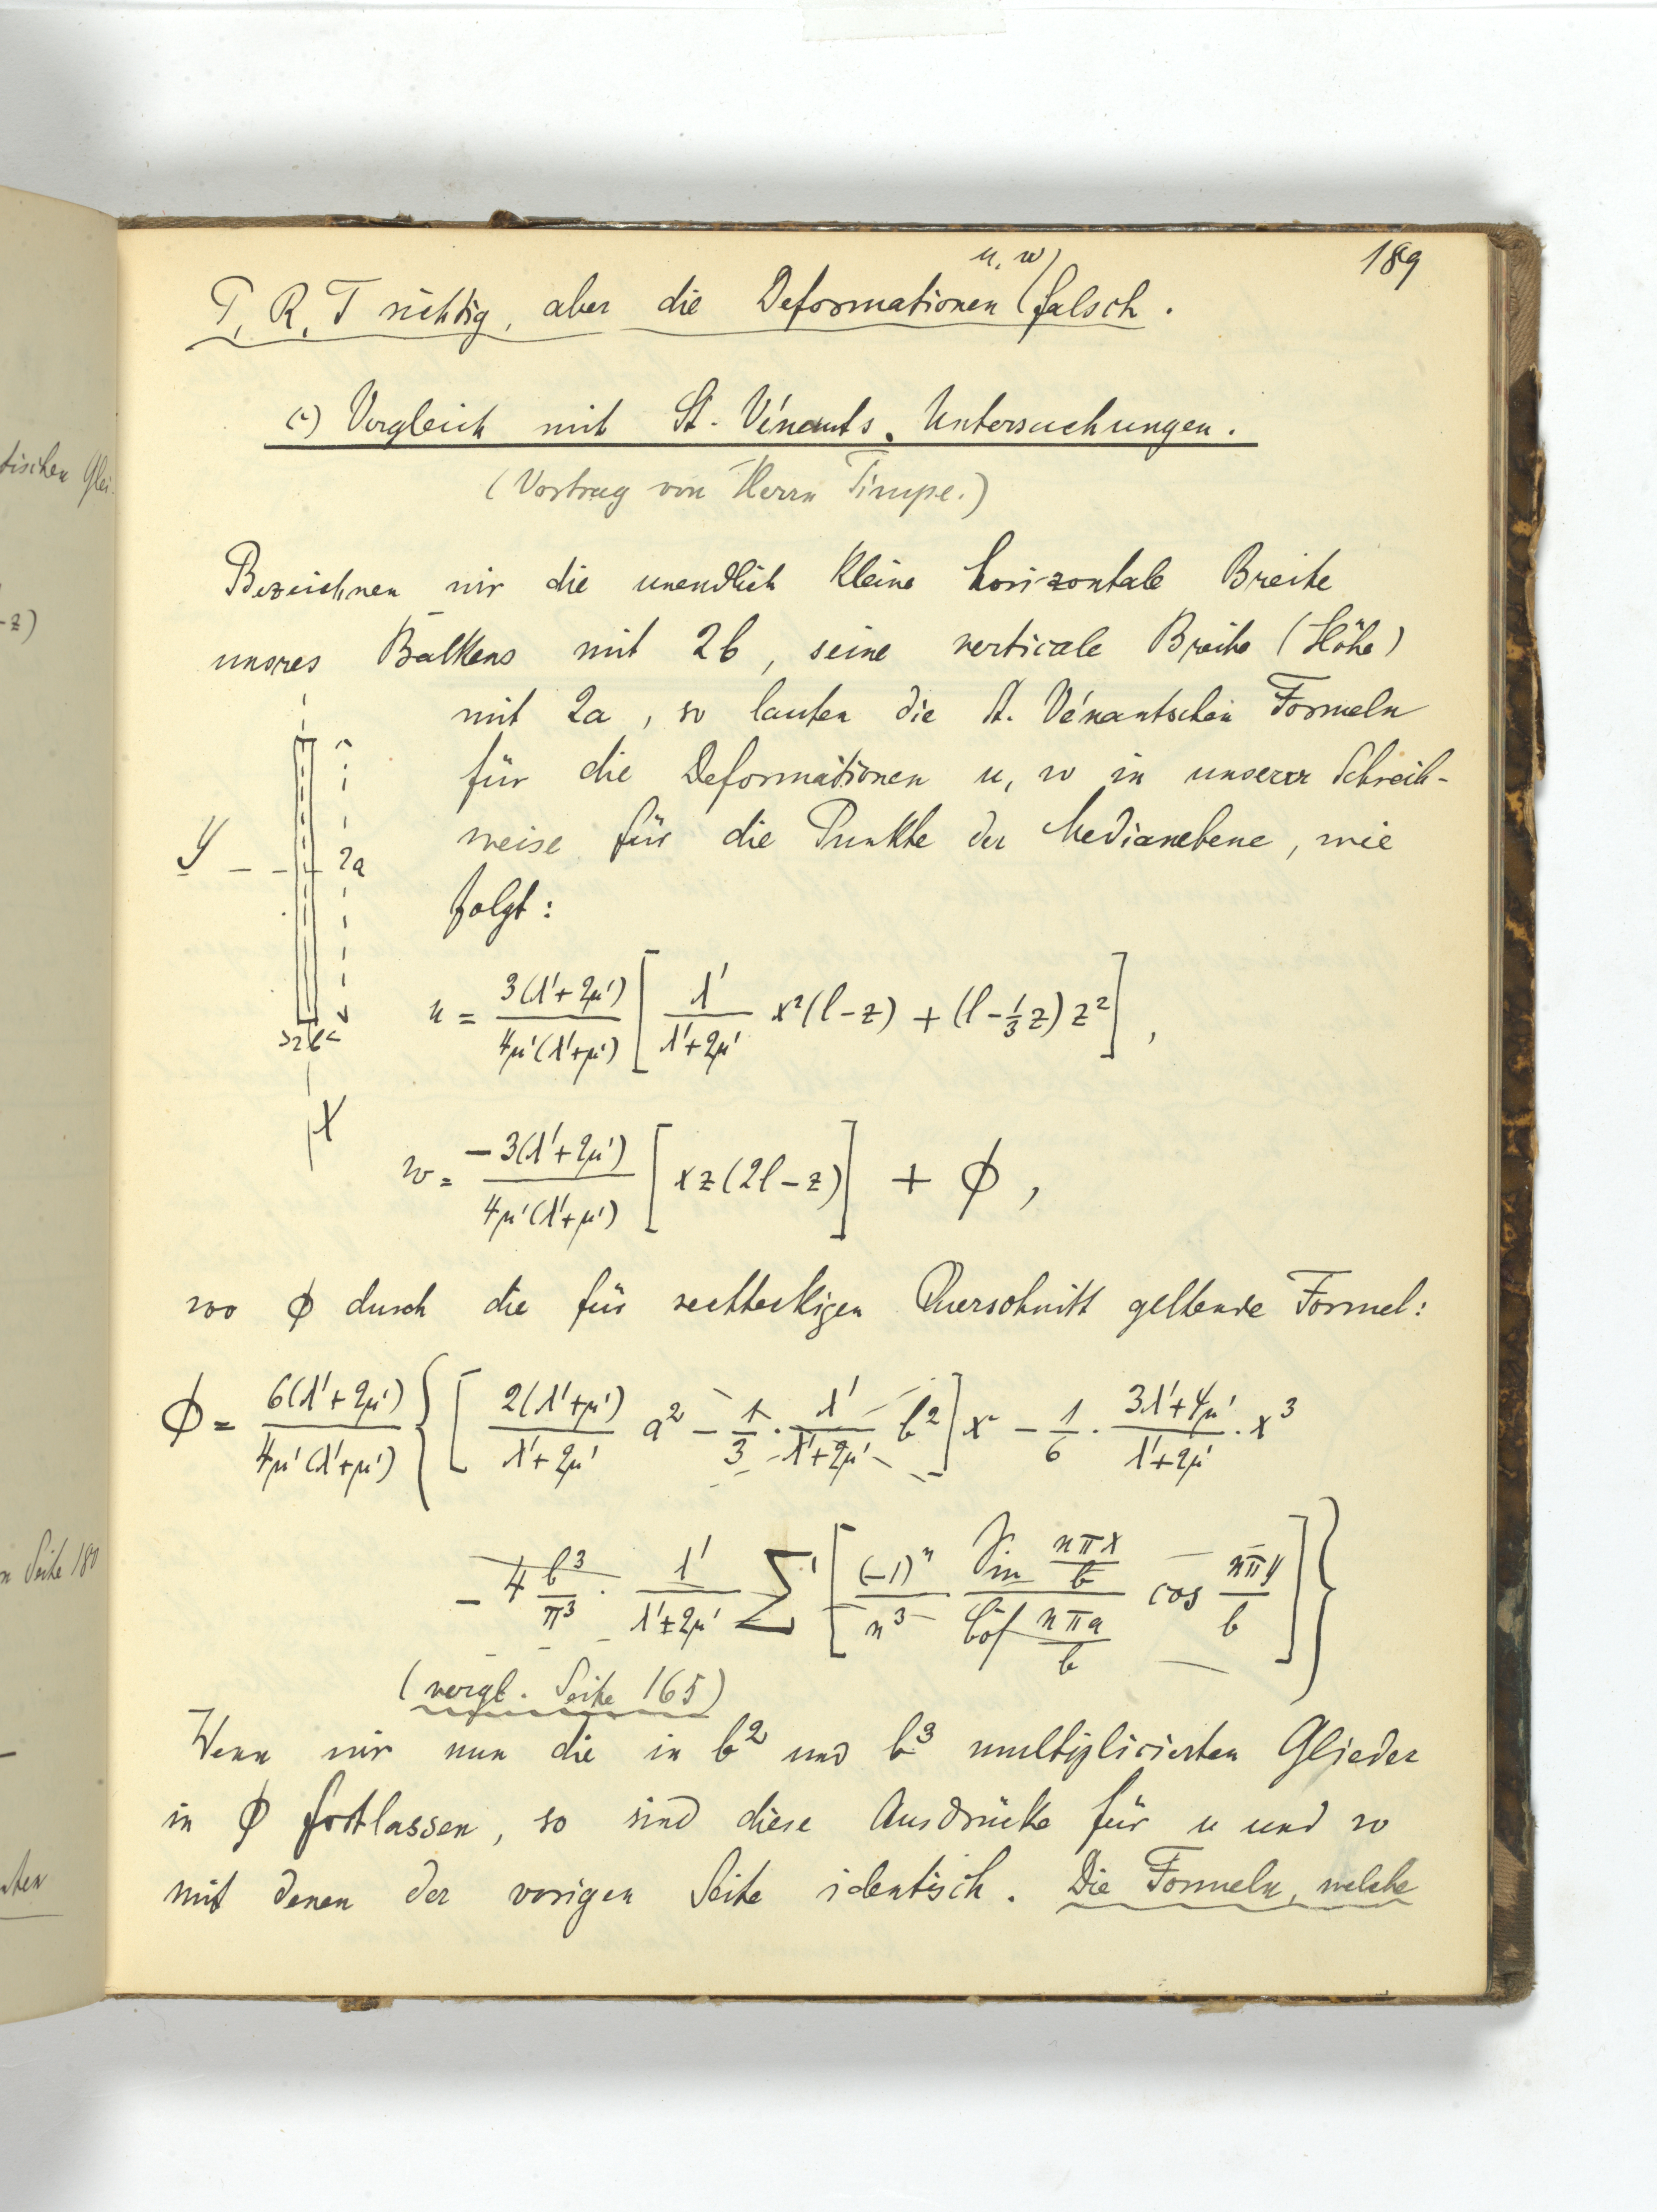 189
P, R, T richtig, aber die Deformationen (u, w) falsch.
c) Vergleich mit St. Vénants. Untersuchungen.
(Vortrag von Herrn Timpe.)
Bezeichnen wir die unendlich kleine horizontale Breite
unsres Balkens mit 2b, seine verticale Breite (Höhe)
mit 2a, so lauten die St. Vénantschen Formeln
für die Deformationen u, w in unserer Schreib-
weise für die Punkte der Medianebene, wie
folgt:
Y
2a
2b
X
u = 3(λ'+2μ')/4μ'(λ'+μ') [ λ'/(λ'+2μ') x²(l-z) + (l-⅓z)z² ],
w = -3(λ'+2μ')/4μ'(λ'+μ') [ xz(2l-z) ] + ϕ,
wo ϕ durch die für rechteckigen Querschnitt geltende Formel:
ϕ = 6(λ'+2μ')/4μ'(λ'+μ') { [ 2(λ'+μ')/(λ'+2μ') a² - 1/3 · λ'/(λ'+2μ') b² ] x - 1/6 · (3λ'+4μ')/(λ'+2μ') · x³
- 4 b³/π³ · λ'/(λ'+2μ') Σ' [ (-1)ⁿ/n³ Sin nπx/b / Cof nπa/b cos nπy/b ] }
(vergl. Seite 165)
Wenn wir nun die in b² und b³ multiplicierten Glieder
in ϕ fortlassen, so sind diese Ausdrücke für u und w
mit denen der vorigen Seite identisch. Die Formeln, welche
tischen Glei-
-z)
Seite 180